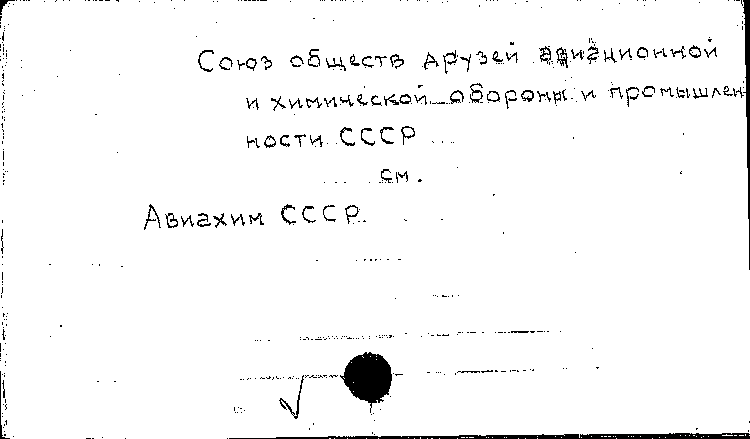 Союз обществ друзей авиационной
и химической обороны и промышлен-
ности СССР
см.
Авиахим СССР